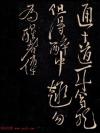 通大道一斗合自然
但得醉中趣勿
為醒者傳